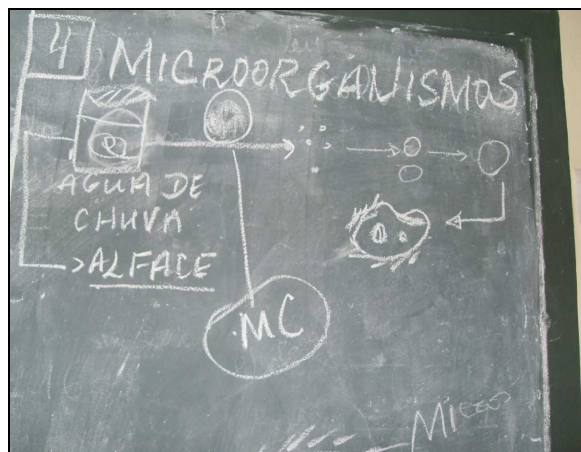 4 MICROORGANISMOS
AGUA DE
CHUVA
ALFACE
MC